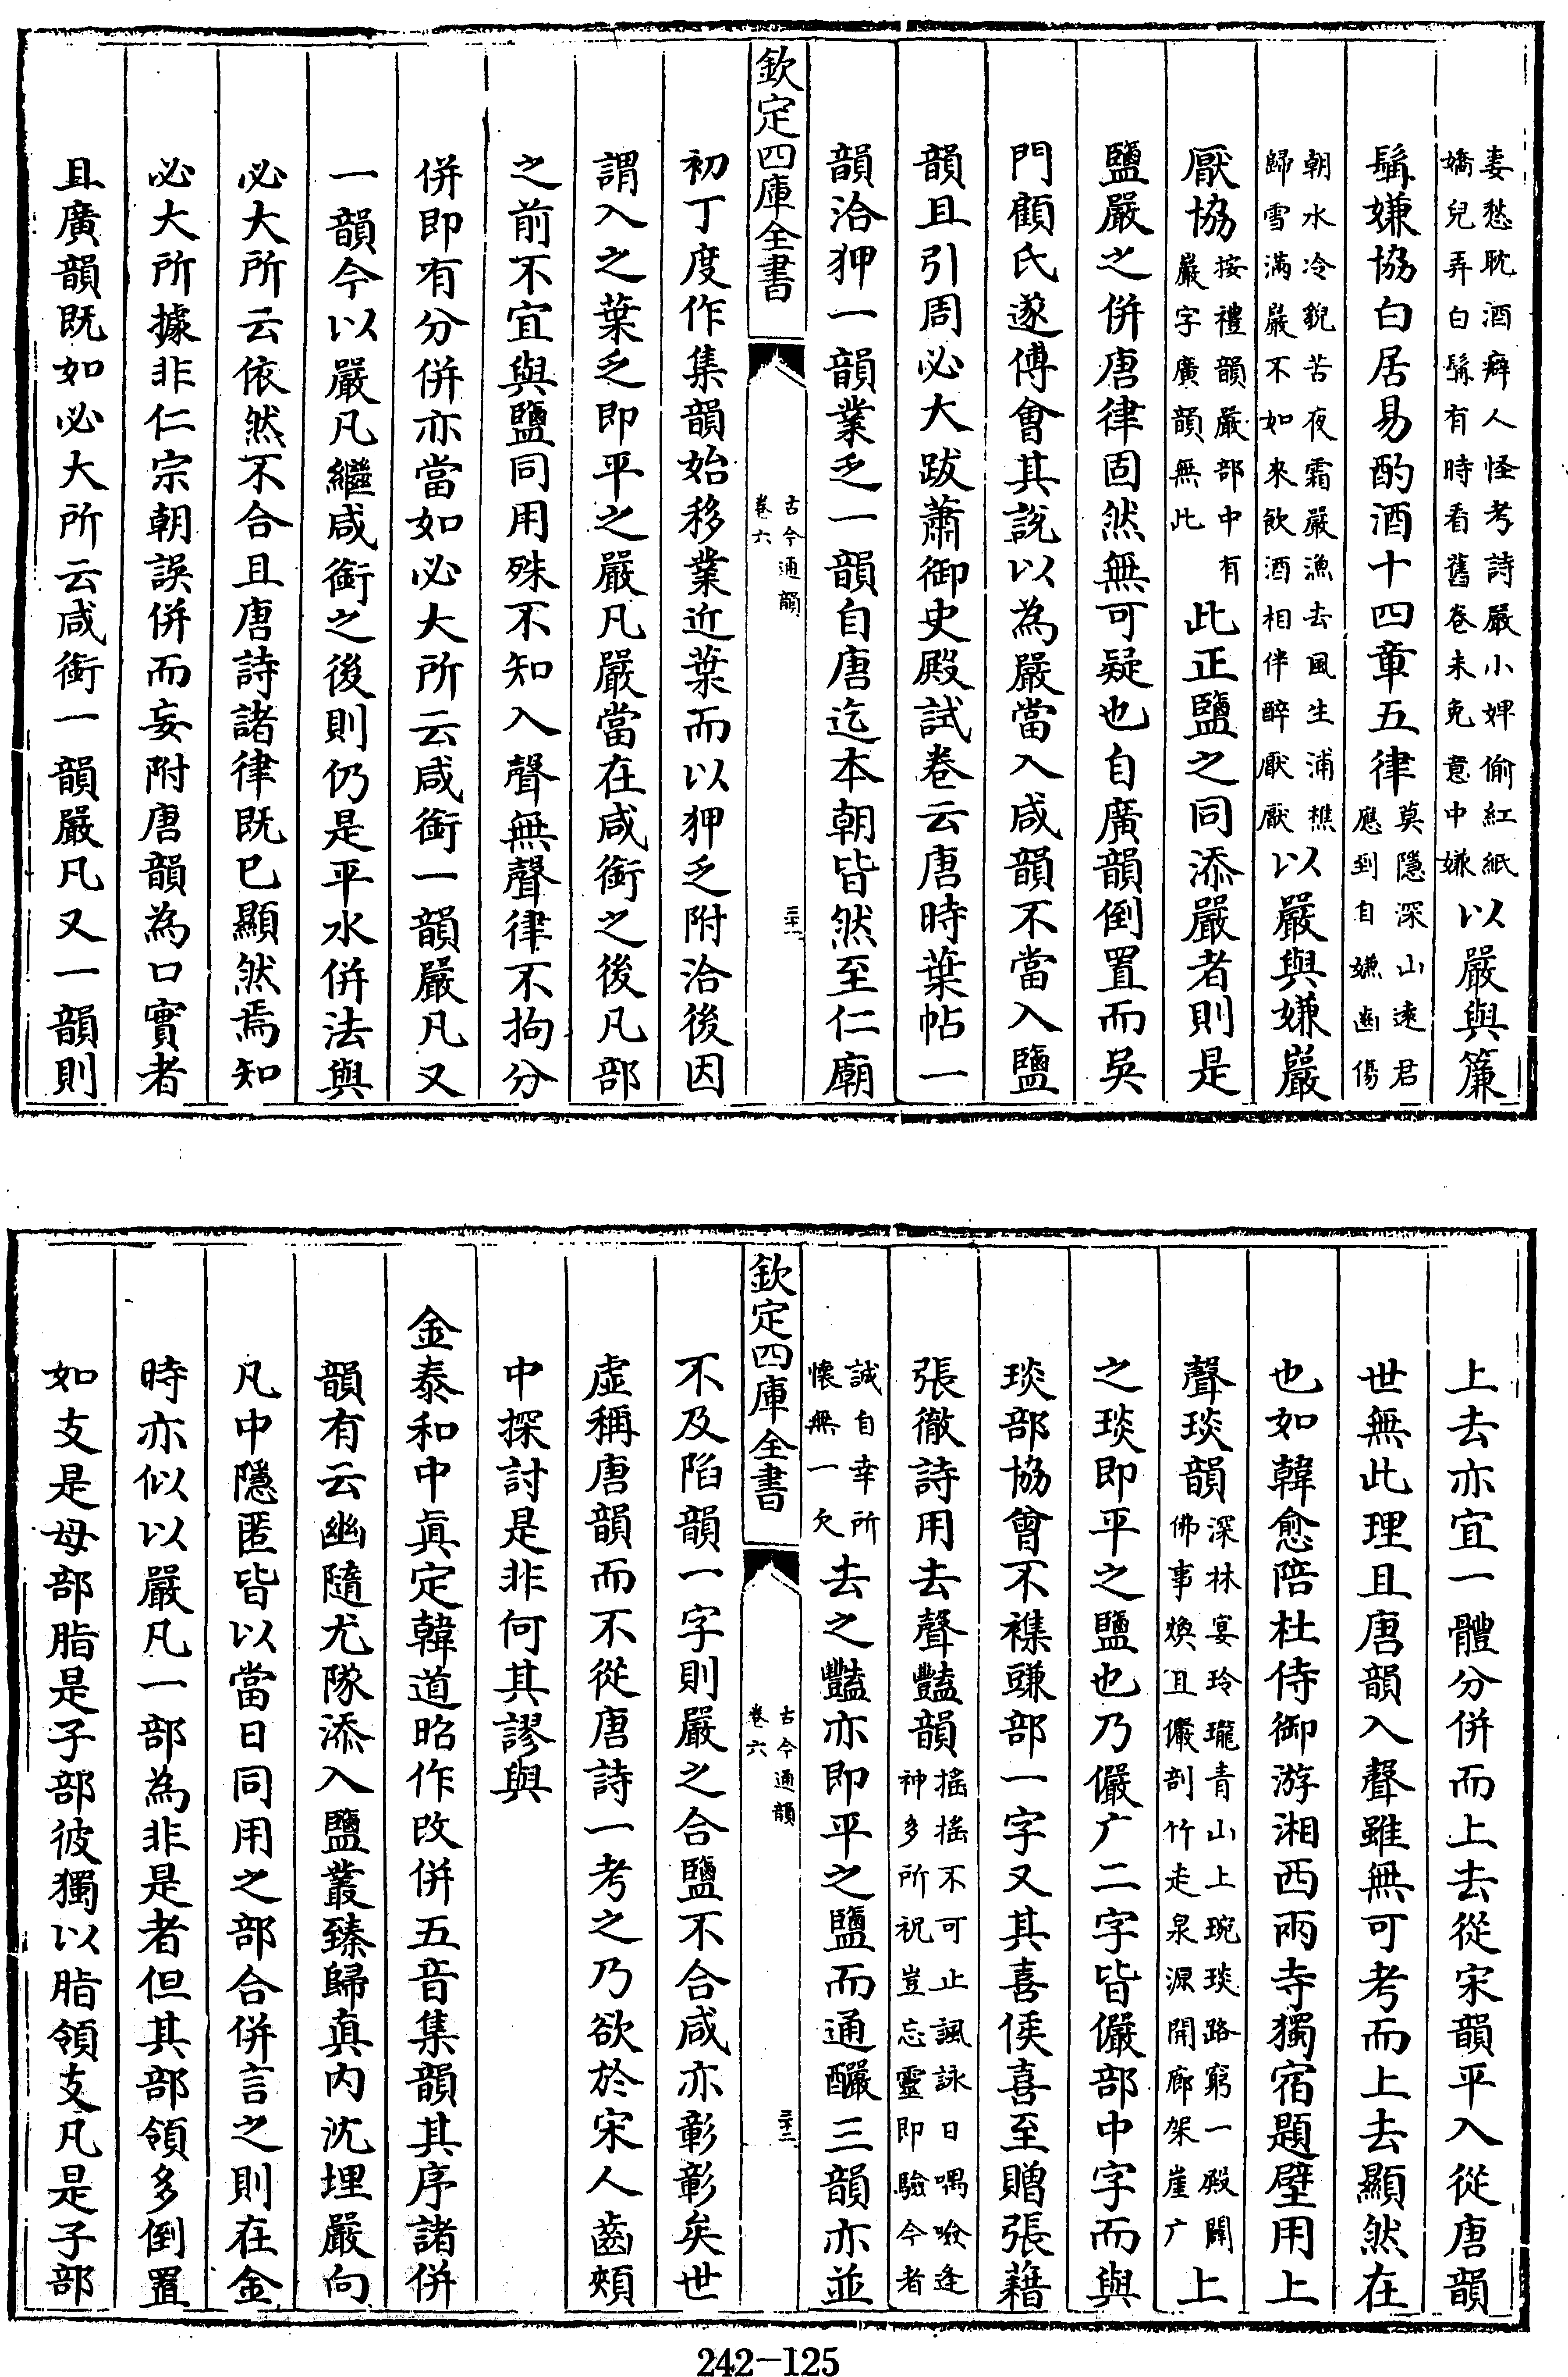 妻愁耽酒癖人怪考詩嚴小婢偷紅紙
嬌兒弄白髯有時看舊卷未免意中嫌以嚴與簾
髯嫌協白居易酌酒十四章五律莫隱深山遠君
應到自嫌齒傷
朝水冷貌苦夜霜嚴漁去風生浦樵
歸雪滿巖不如來飲酒相伴醉厭厭以嚴與嫌巖
厭協按禮韻嚴部中有
巖字廣韻無此此正鹽之同添嚴者則是
鹽嚴之併唐律固然無可疑也自廣韻倒置而吳
門顧氏遂傅會其說以為嚴當入咸韻不當入鹽
韻且引周必大跋蕭御史殿試卷云唐時葉帖一
韻洽狎一韻業乏一韻自唐迄本朝皆然至仁廟
欽定四庫全書
古今通韻
卷六
三十一
初丁度作集韻始移業近葉而以狎乏附洽後因
謂入之葉乏即平之嚴凡嚴當在咸銜之後凡部
之前不宜與鹽同用殊不知入聲無聲律不拘分
併即有分併亦當如必大所云咸銜一韻嚴凡又
一韻今以嚴凡繼咸銜之後則仍是平水併法與
必大所云依然不合且唐詩諸律既已顯然焉知
必大所據非仁宗朝誤併而妄附唐韻為口實者
且廣韻既如必大所云咸銜一韻嚴凡又一韻則
上去亦宜一體分併而上去從宋韻平入從唐韻
世無此理且唐韻入聲雖無可考而上去顯然在
也如韓愈陪杜侍御游湘西兩寺獨宿題壁用上
聲琰韻深林宴玲瓏青山上琬琰路窮一殿闢
佛事煥且儼剖竹走泉源開廊架崖广上
之琰即平之鹽也乃儼广二字皆儼部中字而與
琰部協曾不襍豏部一字又其喜侯喜至贈張籍
張徹詩用去聲豔韻搖搖不可止諷詠日喁噞逢
神多所祝豈忘靈即驗今者
誠自幸所
懷無一欠去之豔亦即平之鹽而通釅三韻亦並
欽定四庫全書
古今通韻
卷六
三十二
不及陷韻一字則嚴之合鹽不合咸亦彰彰矣世
虛稱唐韻而不從唐詩一考之乃欲於宋人齒頰
中探討是非何其謬與
金泰和中眞定韓道昭作改併五音集韻其序諸併
韻有云幽隨尤隊添入鹽叢臻歸真內沈埋嚴向
凡中隱匿皆以當日同用之部合併言之則在金
時亦似以嚴凡一部為非是者但其部領多倒置
如支是母部脂是子部彼獨以脂領支凡是子部
242-125